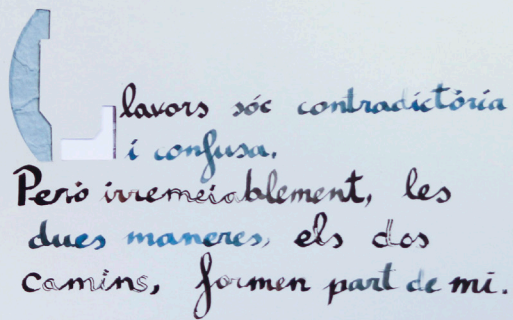 Llavors sóc contradictòria
i confusa.
Però irremeiablement, les
dues maneres, els dos
camins, formen part de mi.